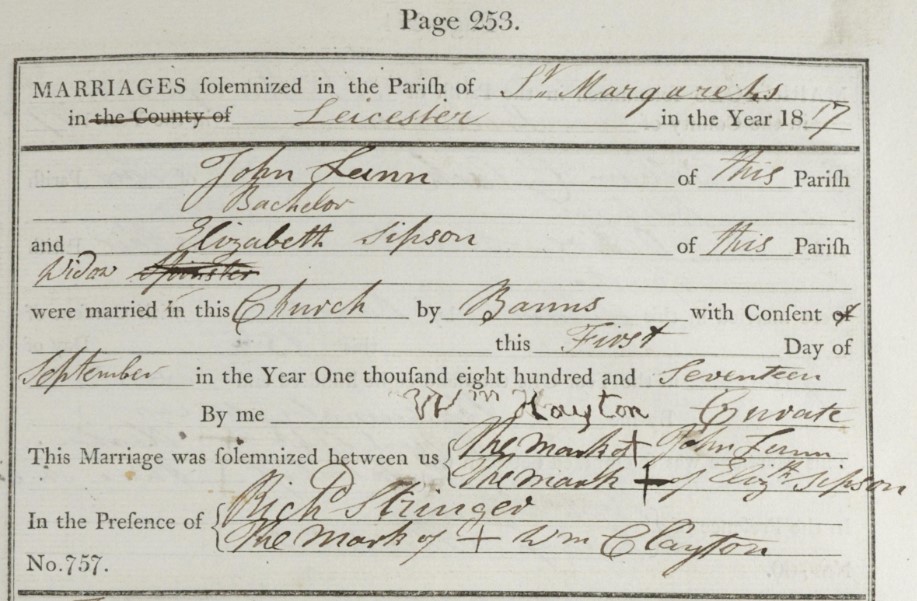 Page 253.
MARRIAGES solemnized in the Parish of St. Margarets
in the County of Leicester in the Year 1817
John Lunn of this Parish
Bachelor
and Elizabeth Sipson of this Parish
Widow Spinster
were married in this Church by Banns with Consent of
this First Day of
September in the Year One thousand eight hundred and Seventeen
By me Wm Hayton Curate
This Marriage was solemnized between us The mark + John Lunn
The mark + of Elizth Sipson
In the Presence of Richd Stringer
The mark of + Wm Clayton
No.757.